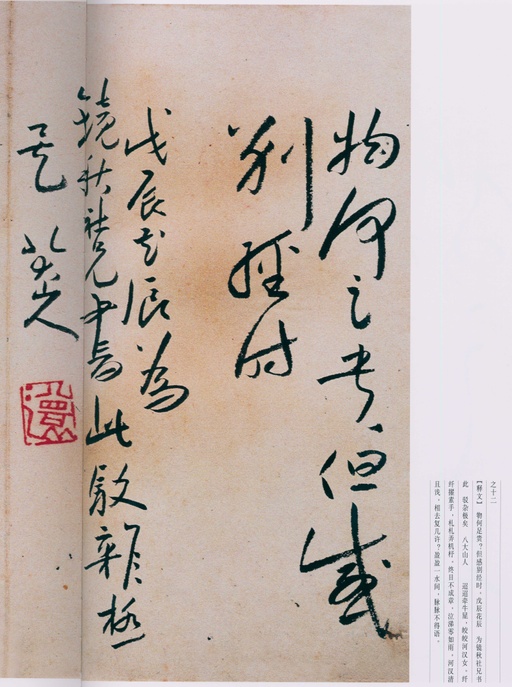 物何足貴但感
別經時
戊辰花辰為
鏡秋社兄書此駁雜極
矣 八大山人
之十二
【释文】 物何足贵？但感别经时。戊辰花辰 为镜秋社兄书
此 驳杂极矣 八大山人 迢迢牵牛星，皎皎河汉女。纤
纤擢素手，札札弄机杼。终日不成章，泣涕零如雨。河汉清
且浅，相去复几许？盈盈一水间，脉脉不得语。